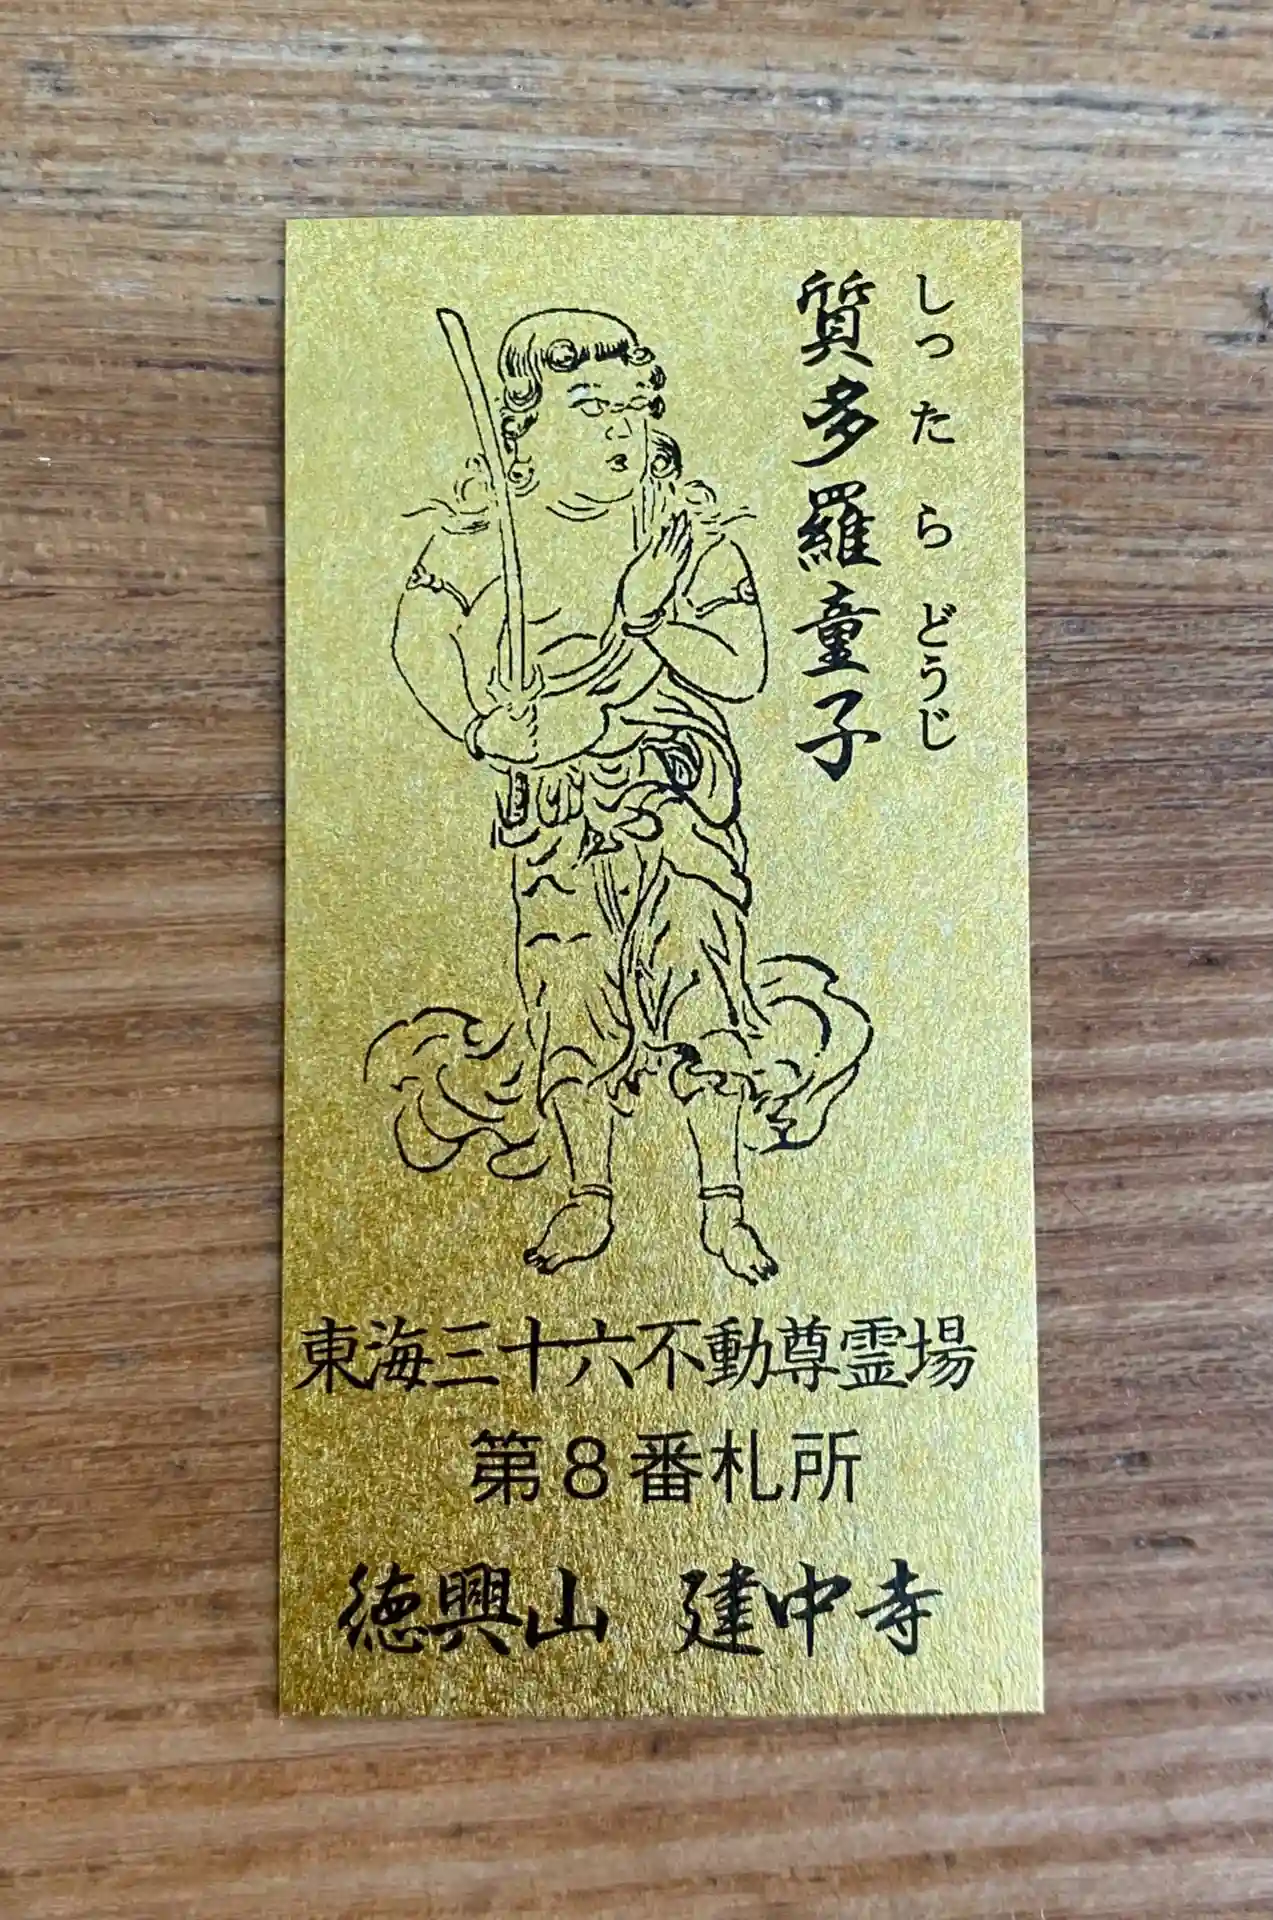 しったらどうじ
質多羅童子
東海三十六不動尊霊場
第8番札所
徳興山 建中寺